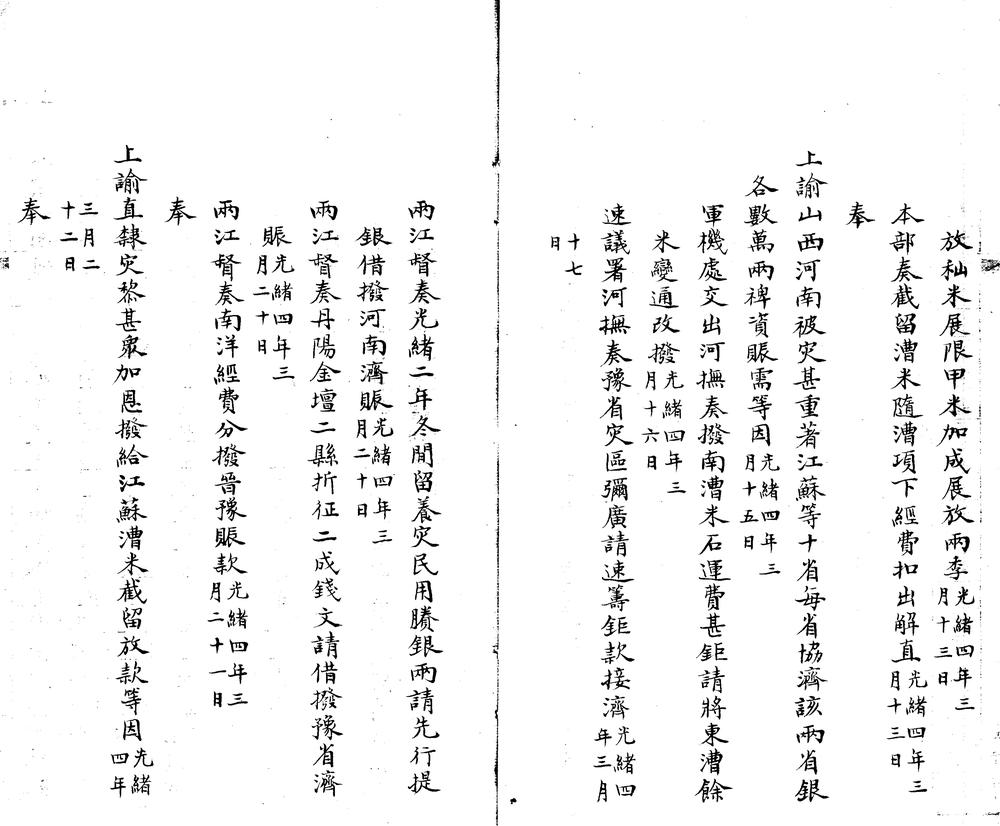 放秈米展限甲米加成展放兩季光緒四年三月十三日
本部奏截留漕米隨漕項下經費扣出解直光緒四年三月十三日
奉
上諭山西河南被灾甚重著江蘇等十省每省協濟該兩省銀
各數萬兩裨資賑需等因光緒四年三月十五日
軍機處交出河撫奏撥南漕米石運費甚鉅請將東漕餘
米變通改撥光緒四年三月十六日
速議署河撫奏豫省灾區彌廣請速籌鉅款接濟光緒四年三月
十七日
兩江督奏光緒二年冬間留養灾民用賸銀兩請先行提
銀借撥河南濟賑光緒四年三月二十日
兩江督奏丹陽金壇二縣折征二成錢文請借撥豫省濟
賑光緒四年三月二十日
兩江督奏南洋經費分撥晉豫賑款光緒四年三月二十一日
奉
上諭直隸灾黎甚眾加恩撥給江蘇漕米截留放款等因光緒四年
三月二十二日
奉